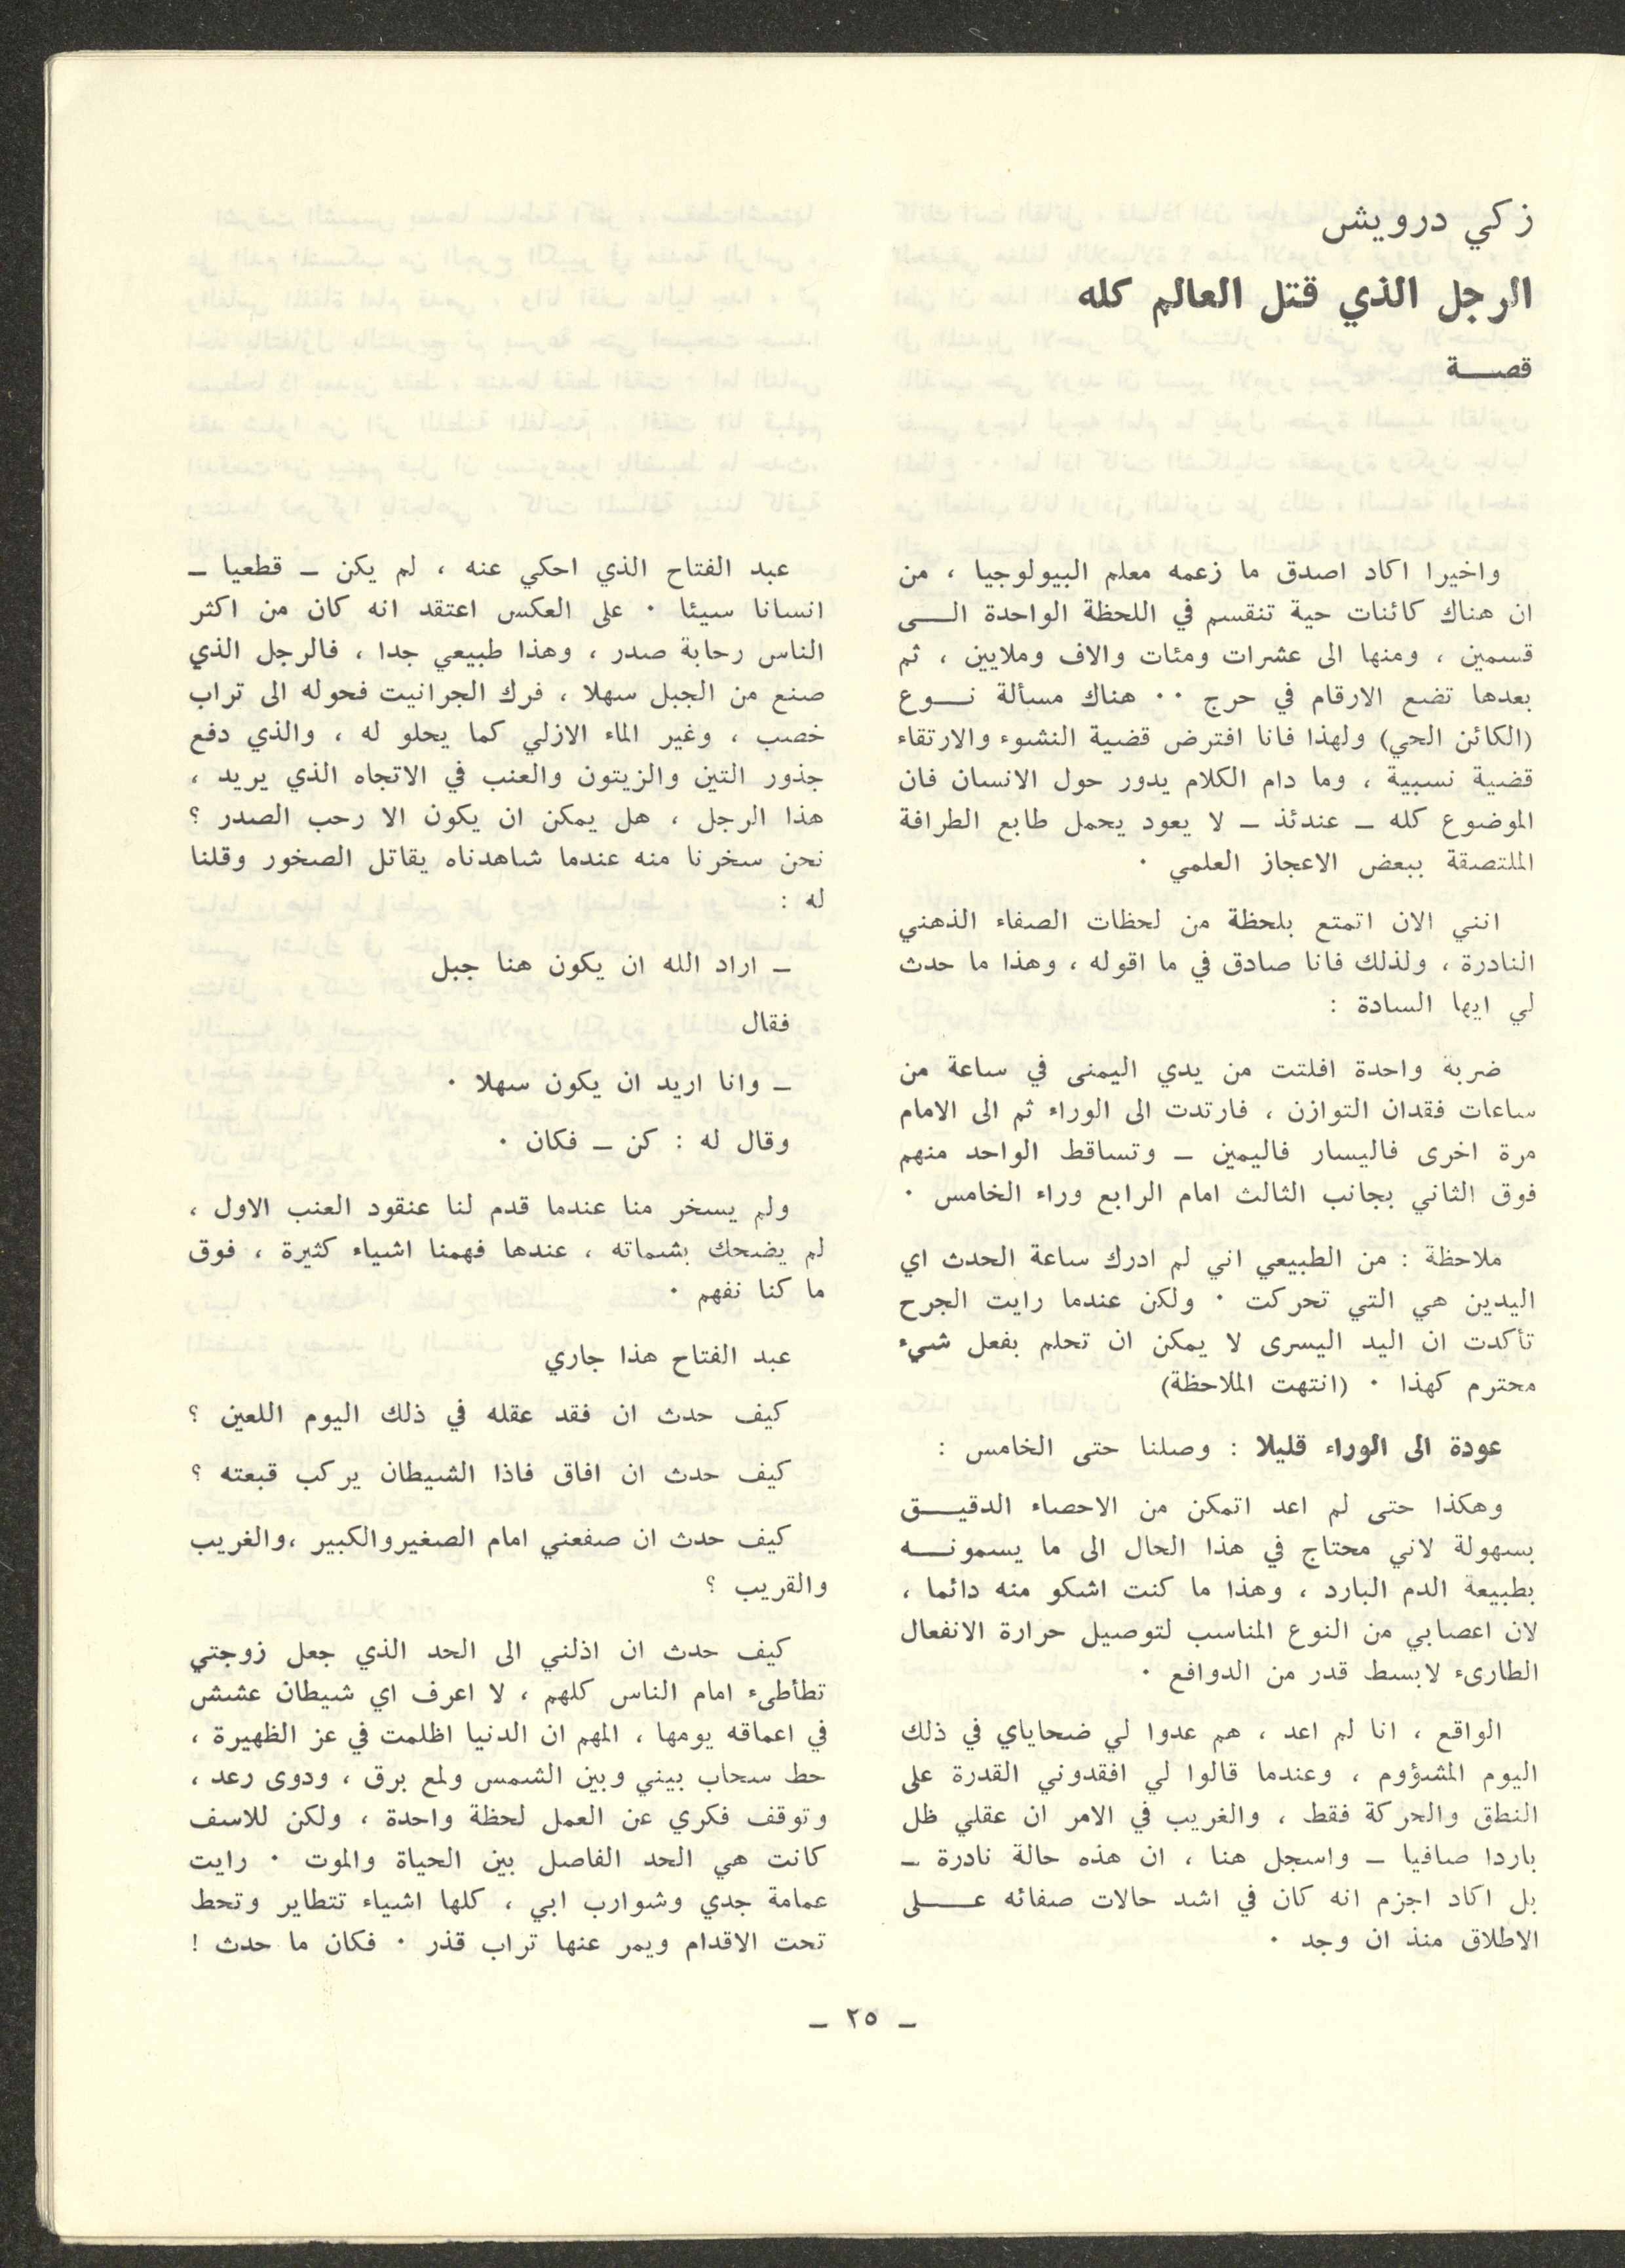 زكي درويش
الرجل الذي قتل العالم كله
قصــــة
واخيرا اكاد اصدق ما زعمه معلم البيولوجيا ، من
ان هناك كائنات حية تنقسم في اللحظة الواحدة الــــى
قسمين ، ومنها الى عشرات ومئات والاف وملايين ، ثم
بعدها تضع الارقام في حرج ٠٠ هناك مسألة نــــوع
(الكائن الحي) ولهذا فانا افترض قضية النشوء والارتقاء
قضية نسبية ، وما دام الكلام يدور حول الانسان فان
الموضوع كله ـ عندئذ ـ لا يعود يحمل طابع الطرافة
الملتصقة ببعض الاعجاز العلمي ٠
انني الان اتمتع بلحظة من لحظات الصفاء الذهني
النادرة ، ولذلك فانا صادق في ما اقوله ، وهذا ما حدث
لي ايها السادة :
ضربة واحدة افلتت من يدي اليمنى في ساعة من
ساعات فقدان التوازن ، فارتدت الى الوراء ثم الى الامام
مرة اخرى فاليسار فاليمين ـ وتساقط الواحد منهم
فوق الثاني بجانب الثالث امام الرابع وراء الخامس ٠
ملاحظة : من الطبيعي اني لم ادرك ساعة الحدث اي
اليدين هي التي تحركت ٠ ولكن عندما رايت الجرح
تأكدت ان اليد اليسرى لا يمكن ان تحلم بفعل شيء
محترم كهذا ٠ (انتهت الملاحظة)
عودة الى الوراء قليلا : وصلنا حتى الخامس :
وهكذا حتى لم اعد اتمكن من الاحصاء الدقيــــق
بسهولة لاني محتاج في هذا الحال الى ما يسمونــــه
بطبيعة الدم البارد ، وهذا ما كنت اشكو منه دائما ،
لان اعصابي من النوع المناسب لتوصيل حرارة الانفعال
الطارىء لابسط قدر من الدوافع ٠
الواقع ، انا لم اعد ، هم عدوا لي ضحاياي في ذلك
اليوم المشؤوم ، وعندما قالوا لي افقدوني القدرة على
النطق والحركة فقط ، والغريب في الامر ان عقلي ظل
باردا صافيا ـ واسجل هنا ، ان هذه حالة نادرة ـ
بل اكاد اجزم انه كان في اشد حالات صفائه عــــلى
الاطلاق منذ ان وجد ٠
عبد الفتاح الذي احكي عنه ، لم يكن ـ قطعيا ـ
انسانا سيئا ٠ على العكس اعتقد انه كان من اكثر
الناس رحابة صدر ، وهذا طبيعي جدا ، فالرجل الذي
صنع من الجبل سهلا ، فرك الجرانيت فحوله الى تراب
خصب ، وغير الماء الازلي كما يحلو له ، والذي دفع
جذور التين والزيتون والعنب في الاتجاه الذي يريد ،
هذا الرجل ، هل يمكن ان يكون الا رحب الصدر ؟
نحن سخرنا منه عندما شاهدناه يقاتل الصخور وقلنا
له :
ـ اراد الله ان يكون هنا جبل
فقال
ـ وانا اريد ان يكون سهلا ٠
وقال له : كن ـ فكان ٠
ولم يسخر منا عندما قدم لنا عنقود العنب الاول ،
لم يضحك بشماته ، عندها فهمنا اشياء كثيرة ، فوق
ما كنا نفهم ٠
عبد الفتاح هذا جاري
كيف حدث ان فقد عقله في ذلك اليوم اللعين ؟
كيف حدث ان افاق فاذا الشيطان يركب قبعته ؟
كيف حدث ان صفعني امام الصغيروالكبير ،والغريب
والقريب ؟
كيف حدث ان اذلني الى الحد الذي جعل زوجتي
تطأطىء امام الناس كلهم ، لا اعرف اي شيطان عشش
في اعماقه يومها ، المهم ان الدنيا اظلمت في عز الظهيرة ،
حط سحاب بيني وبين الشمس ولمع برق ، ودوى رعد ،
وتوقف فكري عن العمل لحظة واحدة ، ولكن للاسف
كانت هي الحد الفاصل بين الحياة والموت ٠ رايت
عمامة جدي وشوارب ابي ، كلها اشياء تتطاير وتحط
تحت الاقدام ويمر عنها تراب قذر ٠ فكان ما حدث !
ـ ٢٥ ـ